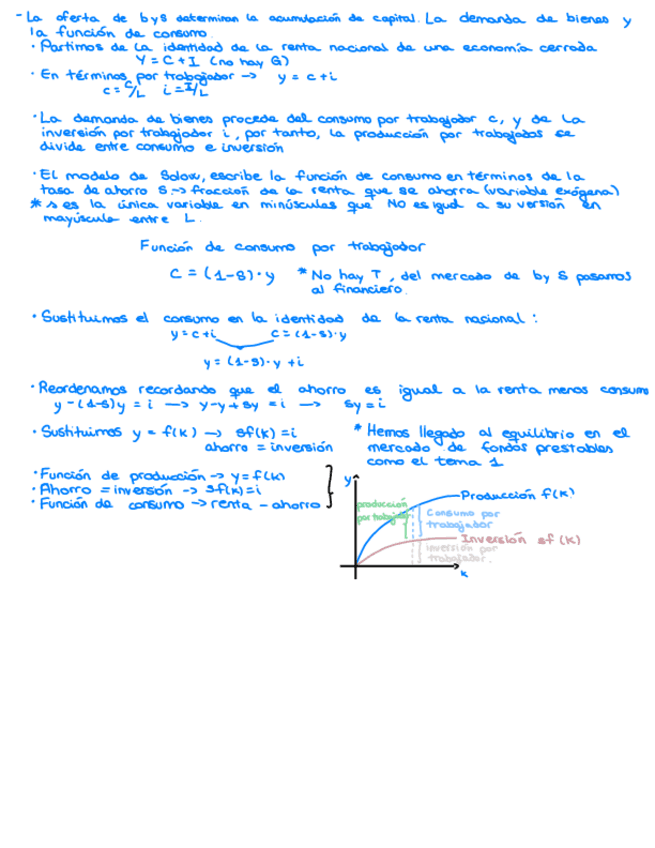 - La oferta de bys determinan la acumulación de capital. La demanda de bienes y
la función de consumo.
· Partimos de la identidad de la renta nacional de una economía cerrada
Y = C + I (no hay G)
· En términos por trabajador -> y = c + i
c = C/L i = I/L
· La demanda de bienes procede del consumo por trabajador c, y de la
inversión por trabajador i, por tanto, la producción por trabajados se
divide entre consumo e inversión
· El modelo de Solow, escribe la función de consumo en términos de la
tasa de ahorro s -> fracción de la renta que se ahorra (variable exógena)
* s es la única variable en minúsculas que NO es igual a su versión en
mayúscula entre L.
Función de consumo por trabajador
C = (1-s)·y * No hay T, del mercado de by S pasamos
al financiero.
· Sustituimos el consumo en la identidad de la renta nacional:
y = c+i C = (1-s)·y
y = (1-s)·y + i
· Reordenamos recordando que el ahorro es igual a la renta menos consum
y - (1-s)y = i -> y-y+sy = i -> sy = i
· Sustituimos y = f(k) -> sf(k) = i * Hemos llegado al equilibrio en el
ahorro = inversión mercado de fondos prestables
como el tema 1
· Función de producción -> y = f(k)
· Ahorro = inversión -> sf(k) = i
· Función de consumo -> renta - ahorro
y
Producción f(k)
producción
por trabajador
Consumo por
trabajador
Inversión sf(k)
inversión por
trabajador.
k